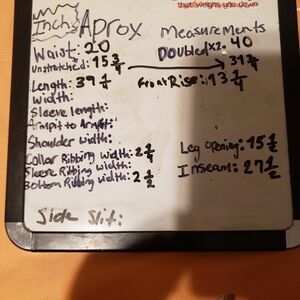 that weighs you down
Inch Aprox Measurements
Waist: 20 Doubled x2: 40
Unstretched: 15 3/4 → 31 3/4
Length: 39 1/4 Front Rise: 13 1/2
Width:
Sleeve length:
Armpit to Armpit:
Shoulder width:
Collar Ribbing width: 2 1/4 Leg opening: 15 1/2
Sleeve Ribbing width: Inseam: 27 1/2
Bottom Ribbing width: 2 1/2
Side Slit: